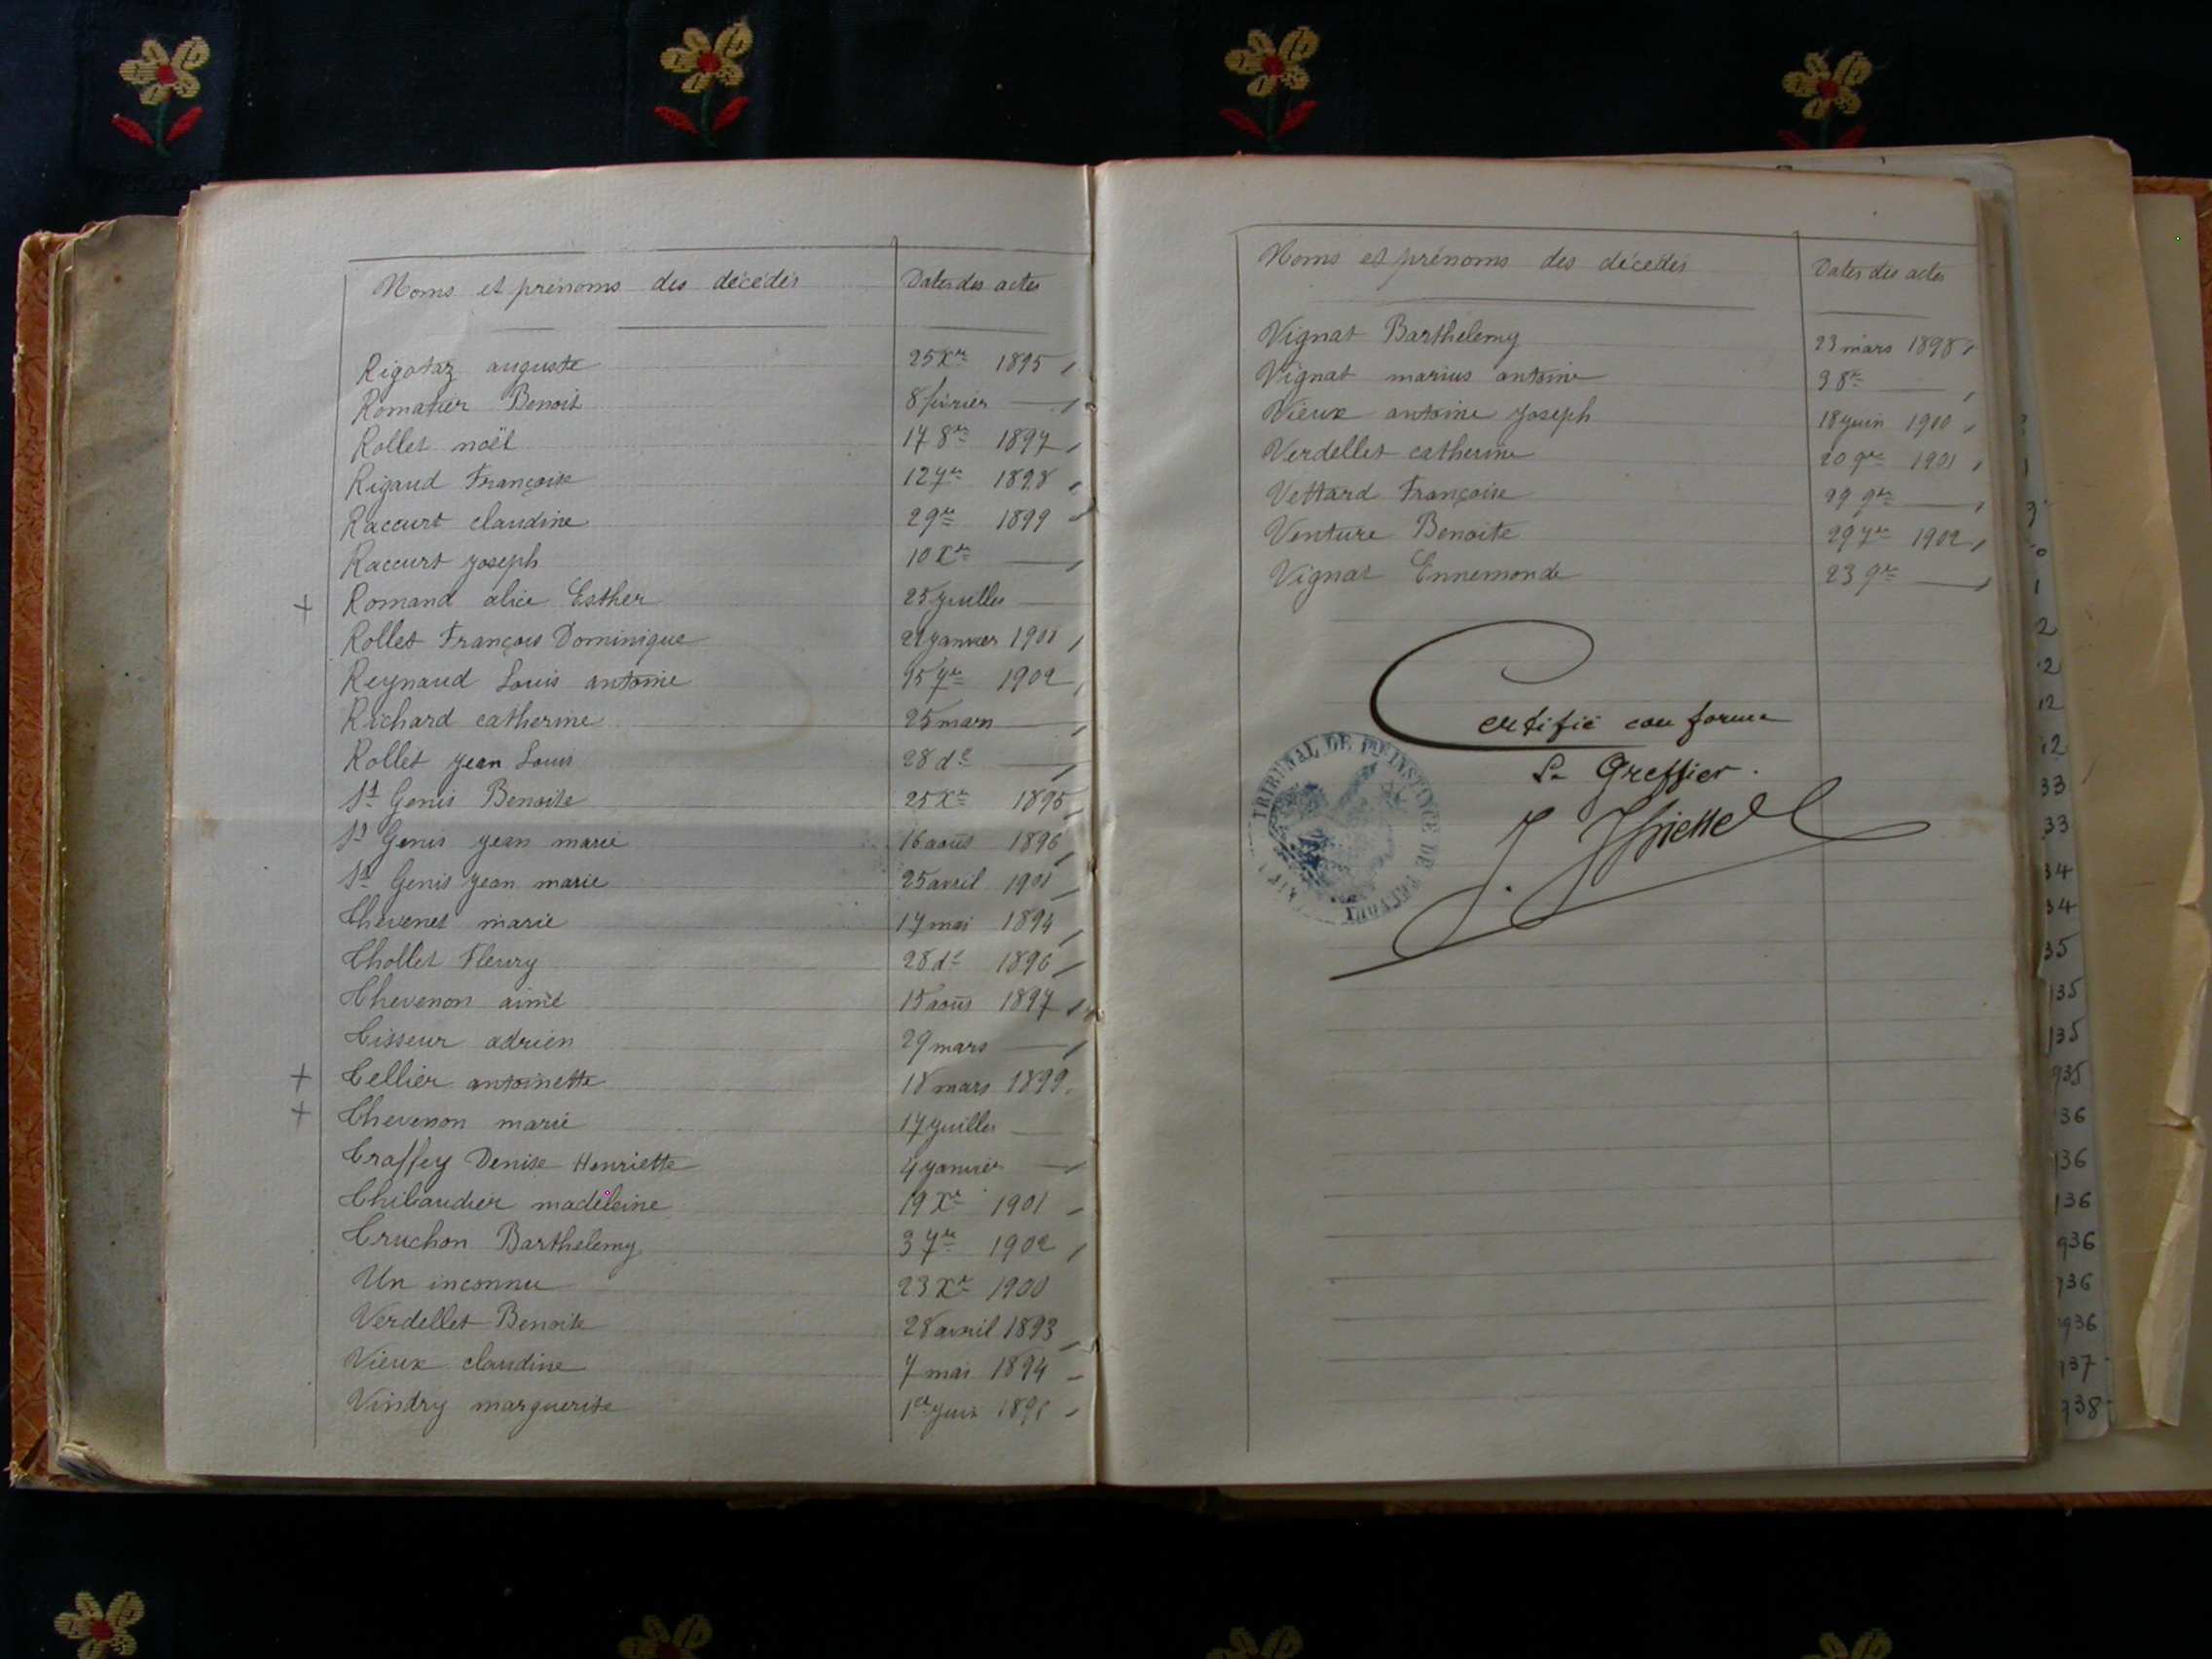 Noms et prénoms des décédés Dates des actes
Rigotaz auguste 25 Xre 1895
Romatier Benoit 8 février —
Rollet noël 17 8re 1897
Rigaud Françoise 12 7re 1898
Raccurt claudine 2 9re 1899
Raccurt Joseph 10 Xre —
+ Romand alice Esther 25 juillet —
Rollet François Dominique janvier
Reynaud Louis antoine 15 7re 1902
Richard catherine 25 mars —
Rollet jean Louis 28 do —
St Genis Benoite 25 Xre 1895
St Genis jean marie 16 août 1896
St Genis jean marie 25 avril 1901
Thevenet marie 17 mai 1894
Thollet Fleury 28 do 1896
Thevenon aimé 15 août 1897
Tisseur adrien 29 mars —
+ Tellier antoinette 18 mars 1899
+ Thevenon marie 17 juillet —
Traffey Denise Henriette 4 janvier —
Thibaudier madeleine 19 Xre 1901
Truchon Barthelemy 3 7re 1902
Un inconnu 23 Xre 1900
Verdellet Benoite 28 avril 1893
Vieux claudine 7 mai 1894
Vindry marguerite 1er juin
Noms et prénoms des décédés Dates des actes
Vignat Barthelemy 23 mars 1898
Vignat marius antoine 3 8re —
Vieux antoine Joseph 18 juin 1900
Verdellet catherine 20 9re 1901
Vettard Françoise 29 9re —
Venture Benoite 29 7re 1902
Vignat Ennemonde 23 9re —
Certifié conforme
Le Greffier.
TRIBUNAL DE 1RE INSTANCE DE
33
33
34
34
35
135
135
935
36
136
136
936
936
936
937
938